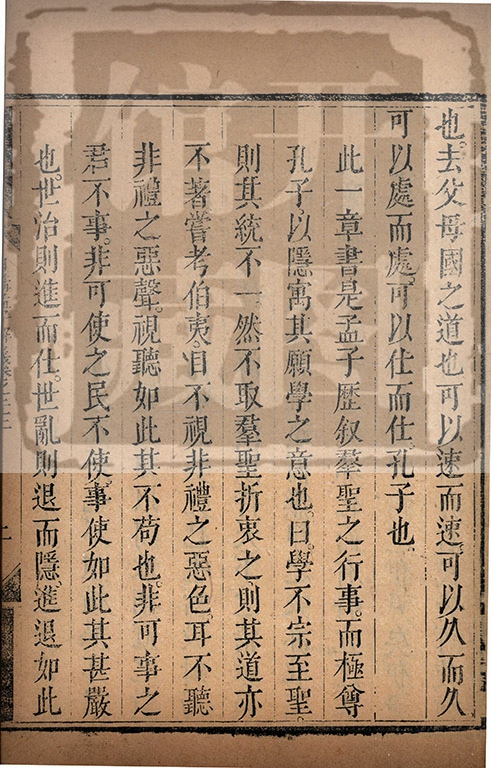 也。去父母國之道也可以速而速。可以久而久
可以處而處。可以仕而仕。孔子也。
此一章書是孟子歷叙羣聖之行事。而極尊
孔子。以隱寓其願學之意也。曰。學不宗至聖。
則其統不一然不取羣聖折衷之則其道亦
不著嘗考伯夷。目不視非禮之惡色。耳不聽
非禮之惡聲。視聽如此其不苟也。非可事之
君不事。非可使之民不使。事使如此其甚嚴
也。世治則進而仕。世亂則退而隱。進退如此